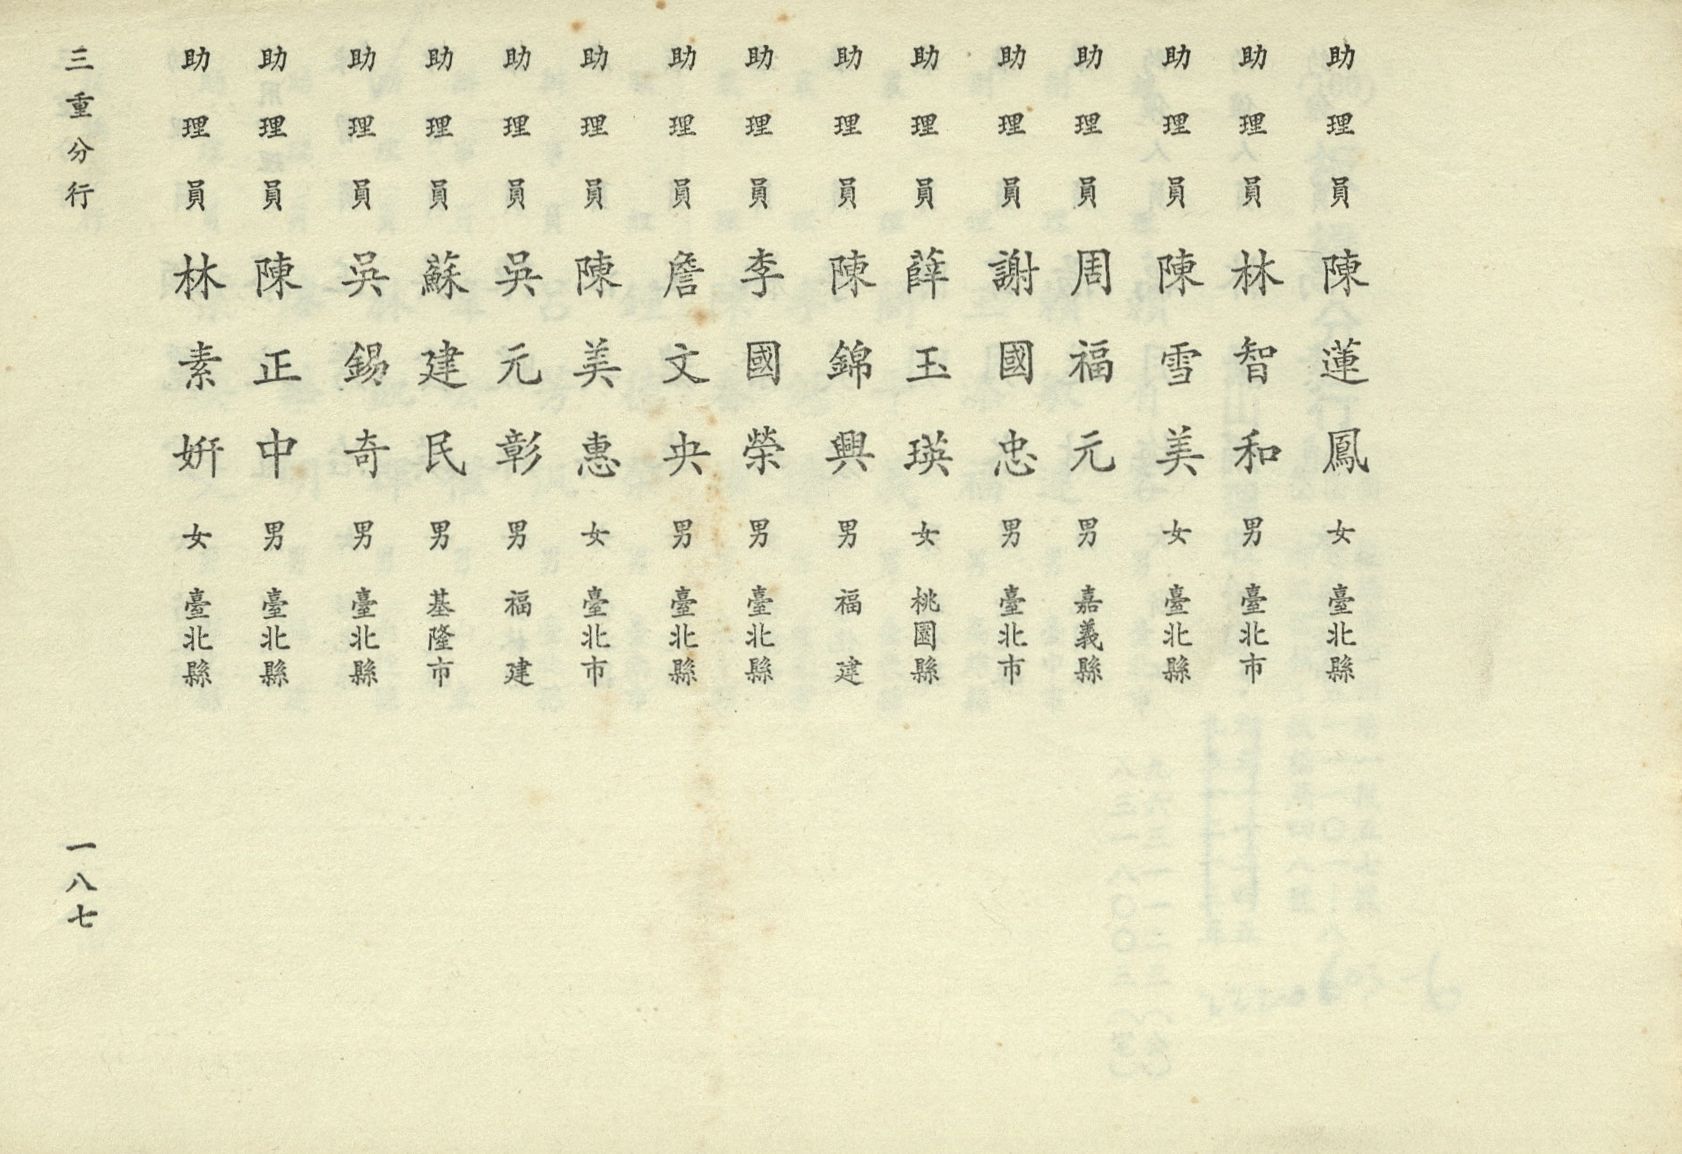 助理員 陳蓮鳳 女 臺北縣
助理員 林智和 男 臺北市
助理員 陳雪美 女 臺北縣
助理員 周福元 男 嘉義縣
助理員 謝國忠 男 臺北市
助理員 薛玉瑛 女 桃園縣
助理員 陳錦興 男 福建
助理員 李國榮 男 臺北縣
助理員 詹文央 男 臺北縣
助理員 陳美惠 女 臺北市
助理員 吳元彰 男 福建
助理員 蘇建民 男 基隆市
助理員 吳錫奇 男 臺北縣
助理員 陳正中 男 臺北縣
助理員 林素姸 女 臺北縣
三重分行 一八七